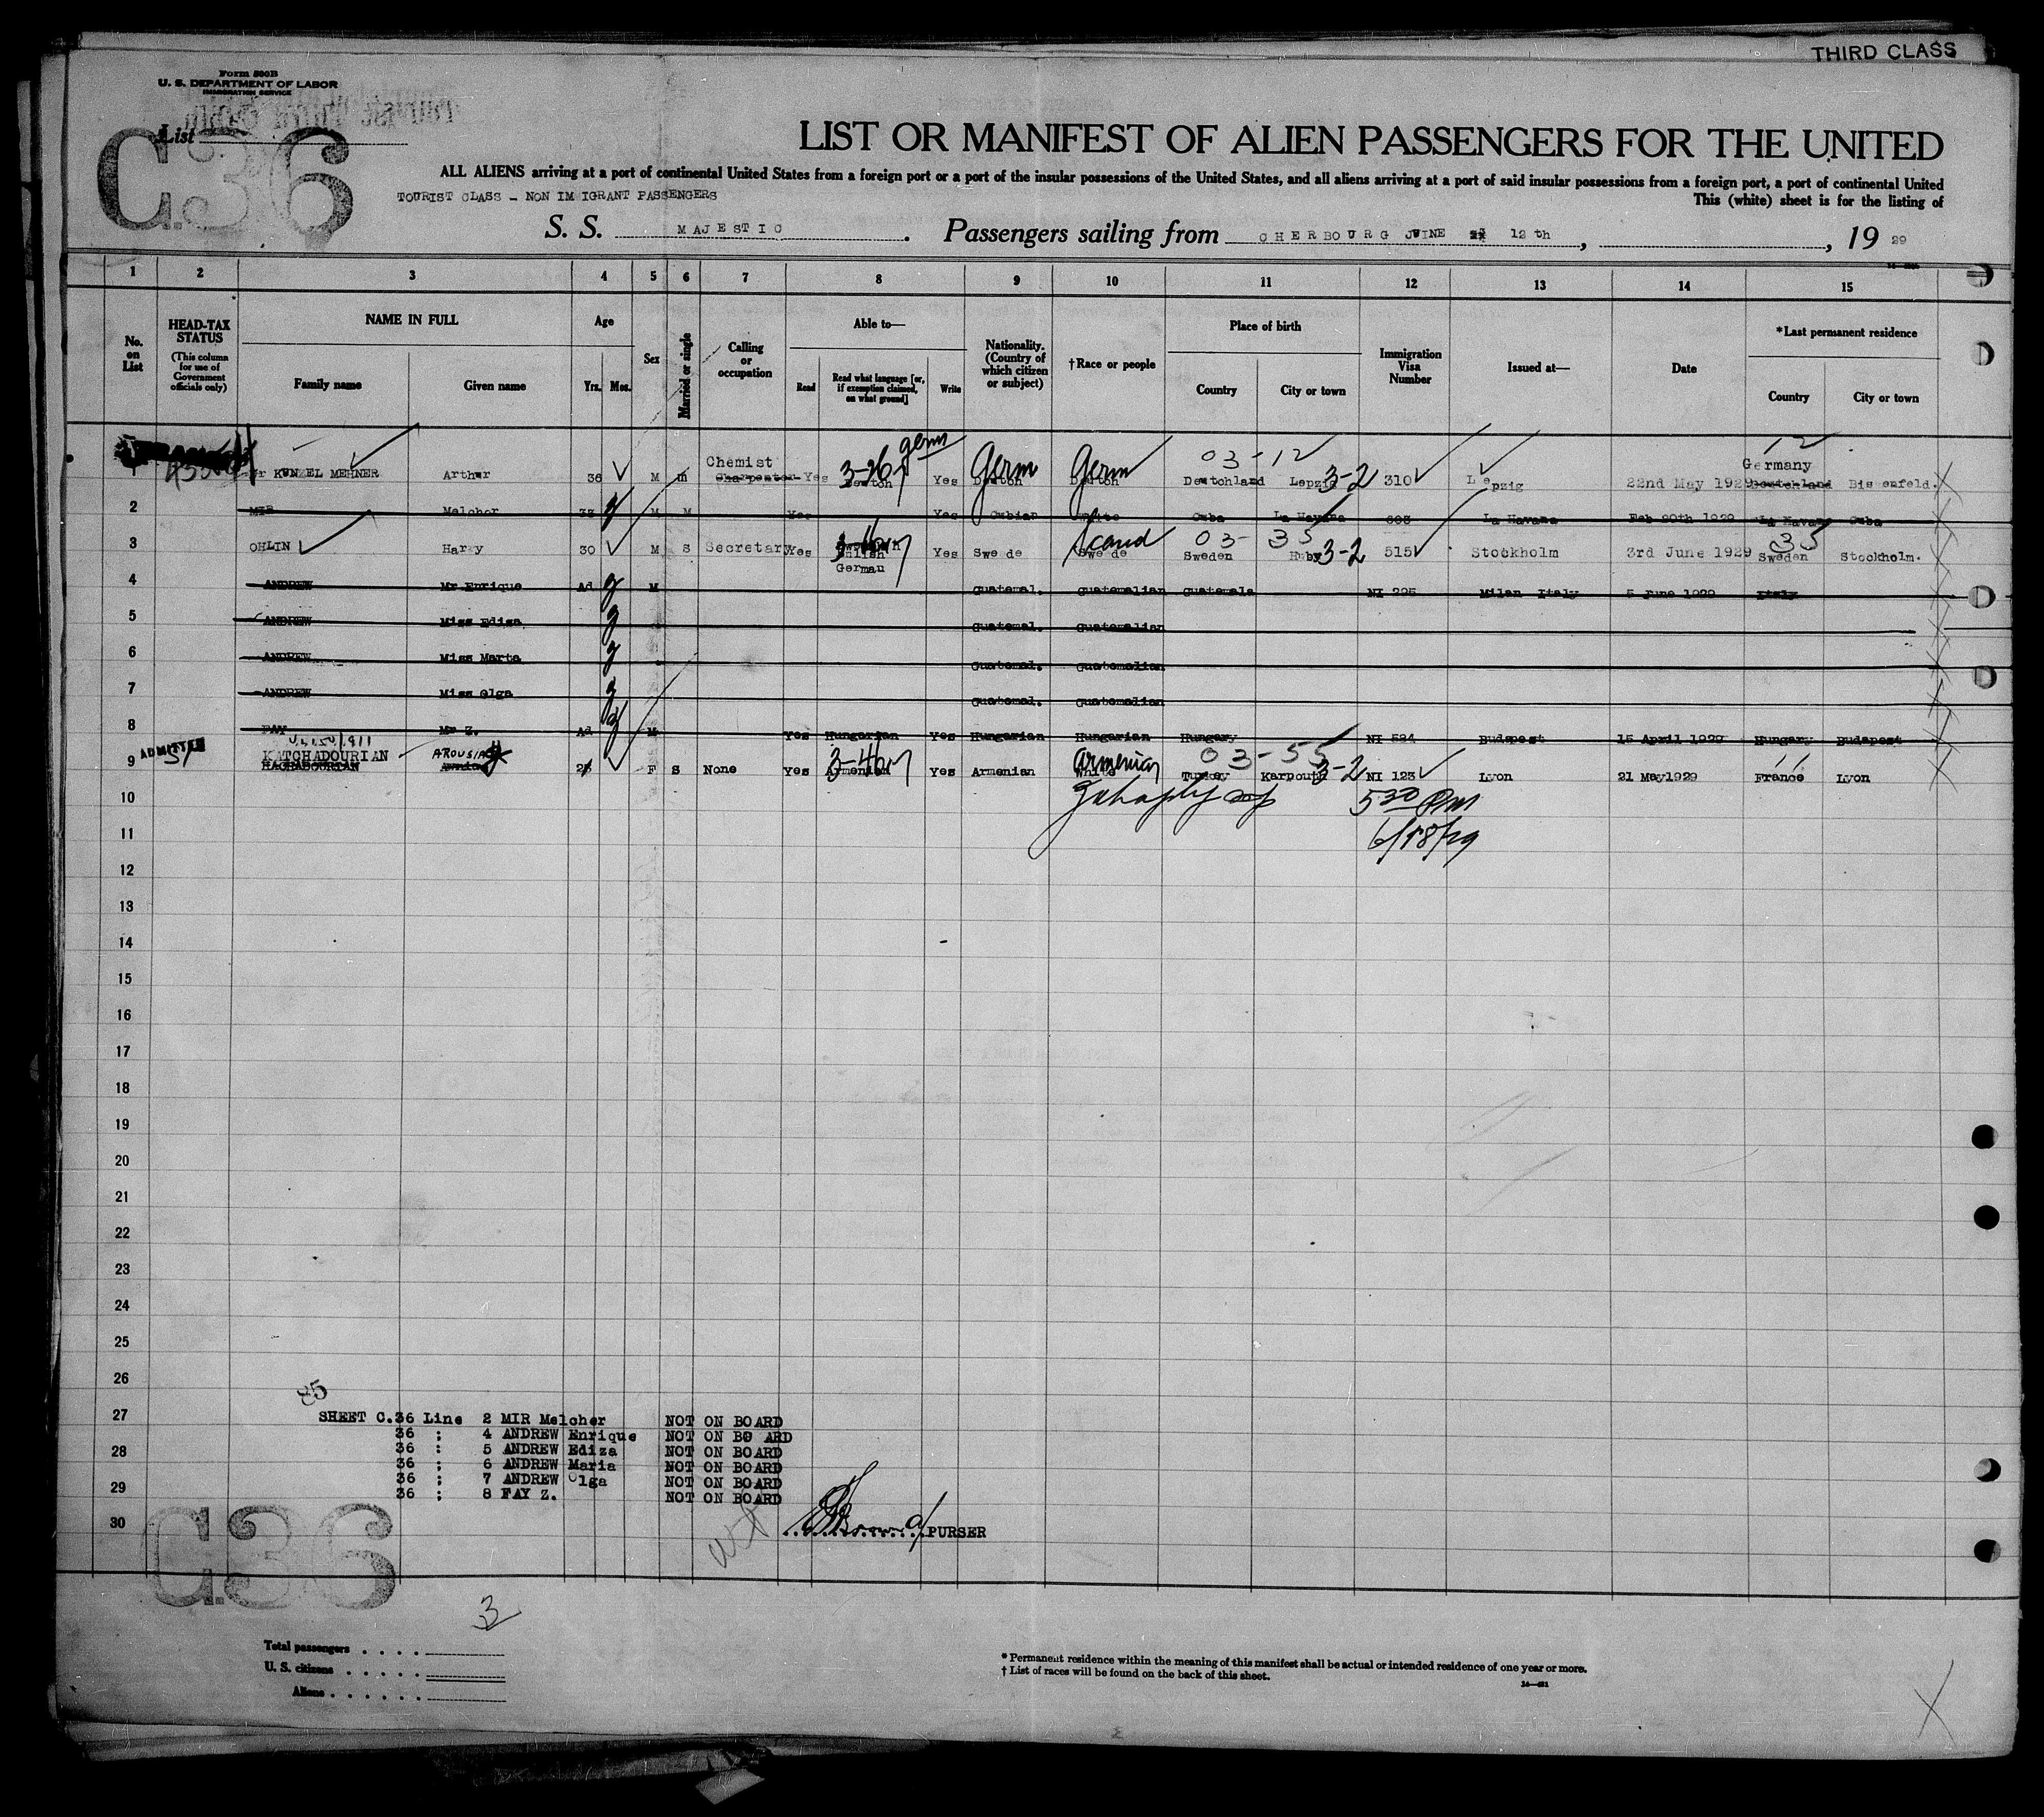 THIRD CLASS
Form 500B
U. S. DEPARTMENT OF LABOR
IMMIGRATION SERVICE
List
C.36
LIST OR MANIFEST OF ALIEN PASSENGERS FOR THE UNITED
ALL ALIENS arriving at a port of continental United States from a foreign port or a port of the insular possessions of the United States, and all aliens arriving at a port of said insular possessions from a foreign port, a port of continental United
TOURIST CLASS - NON IM IGRANT PASSENGERS
This (white) sheet is for the listing of
S. S. MAJESTIC. Passengers sailing from CHERBOURG JUINE 12 th, , 19 29
1 2 3 4 5 6 7 8 9 10 11 12 13 14 15
No. on List
HEAD-TAX STATUS
(This column for use of Government officials only)
NAME IN FULL
Family name Given name
Age
Yrs. Mos.
Sex
Married or single
Calling or occupation
Able to—
Read Read what language [or, if exemption claimed, on what ground] Write
Nationality. (Country of which citizen or subject)
†Race or people
Place of birth
Country City or town
Immigration Visa Number
Issued at—
Date
*Last permanent residence
Country City or town
germ 03-12 12
Chemist 3-26 Germ Germ Germany
1 KUNZEL MEHNER Arthur 36 M m Charpenter Yes Dewton Yes Dewton Dewton Deutchland Lepzig 3-2 310 Lepzig 22nd May 1929 Deutchland Bissenfeld.
2 MIR Melchor 33 M M Yes Yes Cubian White Cuba La Havana 603 La Havana Feb 20th 1929 La Havana Cuba
Scand 03-35 35
3 OHLIN Harry 30 M S Secretary Yes German Yes Swede Swede Sweden 3-2 515 Stockholm 3rd June 1929 Sweden Stockholm.
4 ANDREW Mr Enrique Ad M Guatemal. Guatemalian Guatemala NI 295 Milan Italy 5 June 1929 Italy
5 ANDREW Miss Ediza Guatemal. Guatemalian
6 ANDREW Miss Marta Guatemal. Guatemalian
7 ANDREW Miss Olga Guatemal. Guatemalian
8 FAY Mr Z. Ad M Yes Hungarian Yes Hungarian Hungarian Hungary NI 584 Budapest 15 April 1929 Hungary Budapest
ADMITTED KATCHADOURIAN AROUSIAG 3-46 Armenian 03-55 11
9 F S None Yes Armenian Yes Armenian White Turkey Karpouth 3-2 NI 123 Lyon 21 May1929 France Lyon
10 5 30 Pm
11 6/18/29
12
13
14
15
16
17
18
19
20
21
22
23
24
25
26
27 SHEET C.36 Line 2 MIR Melcher NOT ON BOARD
36 ; 4 ANDREW Enrique NOT ON BO ARD
28 36 ; 5 ANDREW Ediza NOT ON BOARD
36 ; 6 ANDREW Maria NOT ON BOARD
29 36 ; 7 ANDREW Olga NOT ON BOARD
36 ; 8 FAY Z. NOT ON BOARD
30 PURSER
C.36
3
Total passengers . . . .
U. S. citizens . . . . .
Aliens . . . . . .
* Permanent residence within the meaning of this manifest shall be actual or intended residence of one year or more.
† List of races will be found on the back of this sheet.